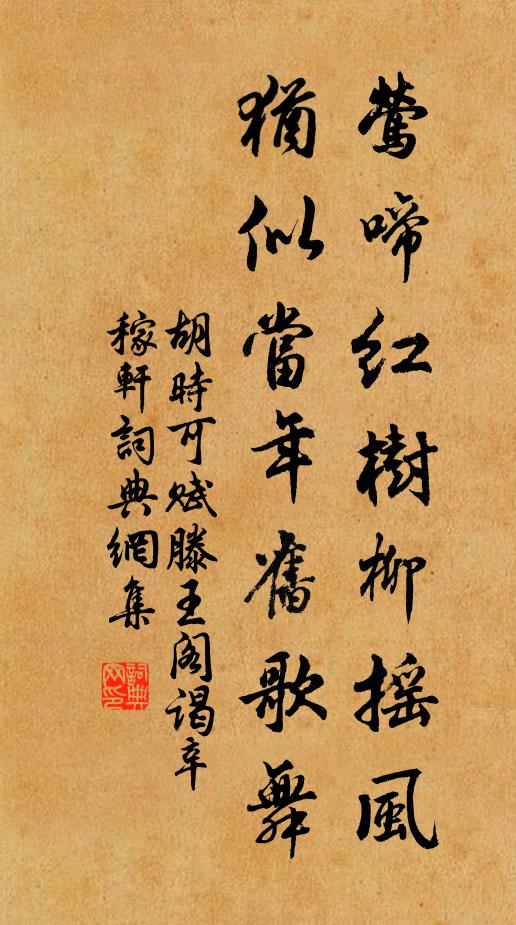 鶯啼紅樹柳搖風
猶似當年舊歌舞
胡時可賦滕王閣謁辛
稼軒詞典網集
詞典网印